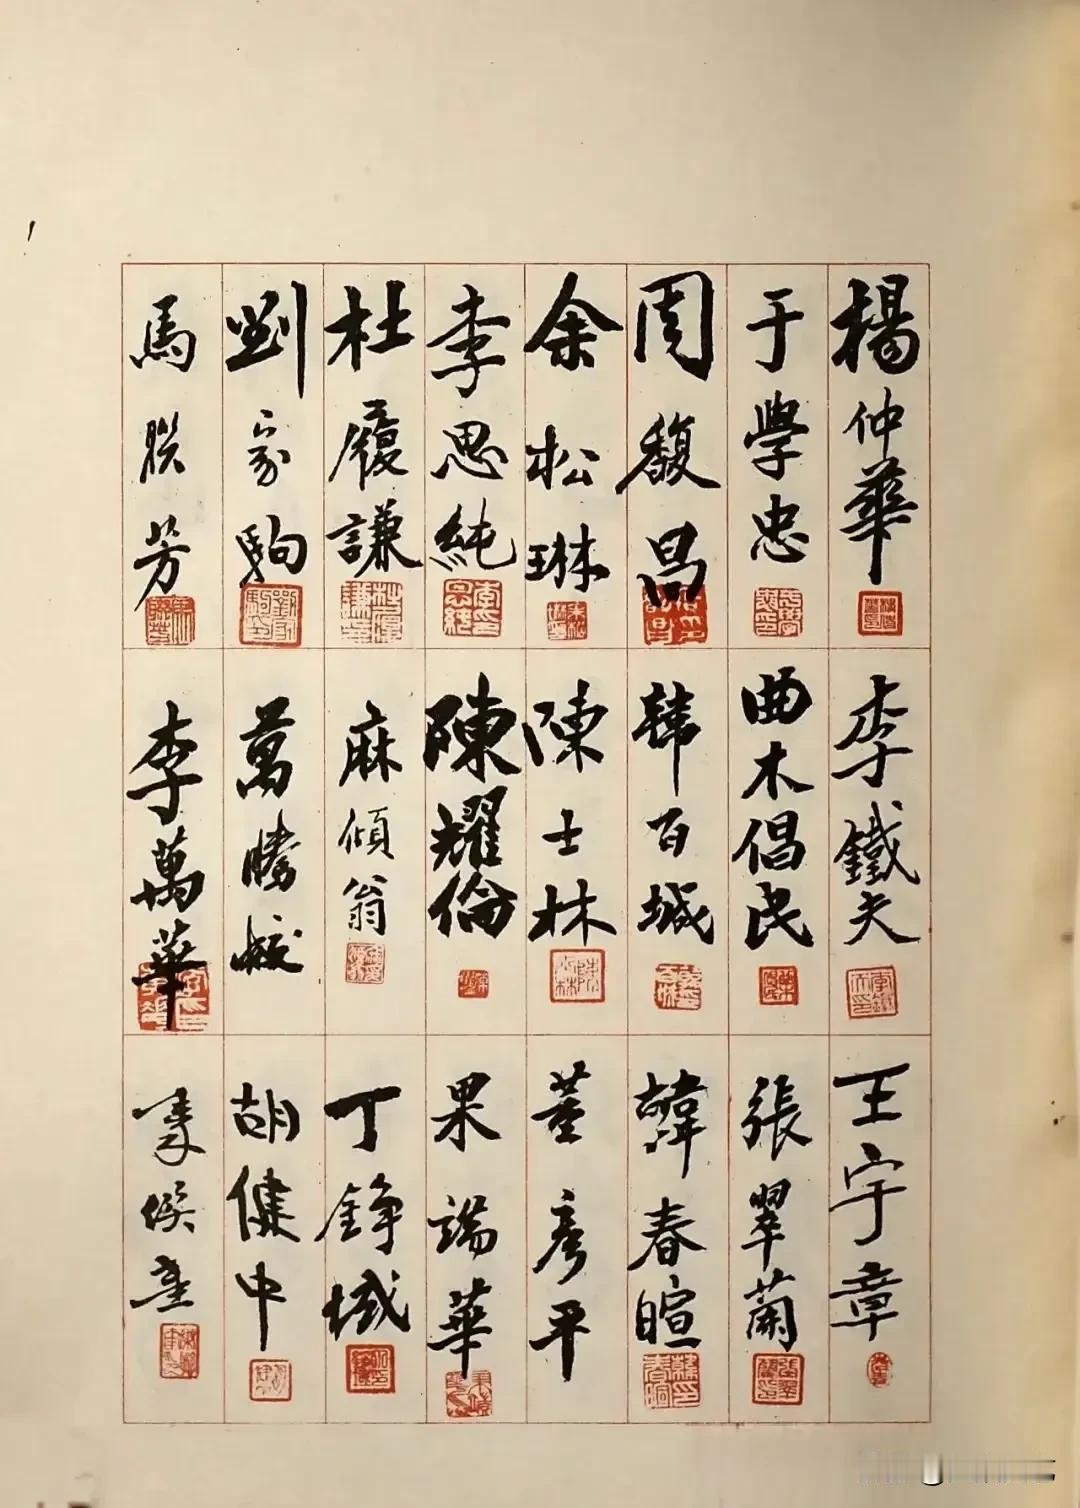 楊仲華
于學忠
周馥昌
余松琳
李思純
杜履謙
劉家駒
馬朕芳
李鐵夫
曲木倡民
韓百城
陳士林
陳耀倫
麻傾翁
萬騰蛟
李萬華
王宇章
張翠蘭
韓春暄
董彦平
果端華
丁錚域
胡健中